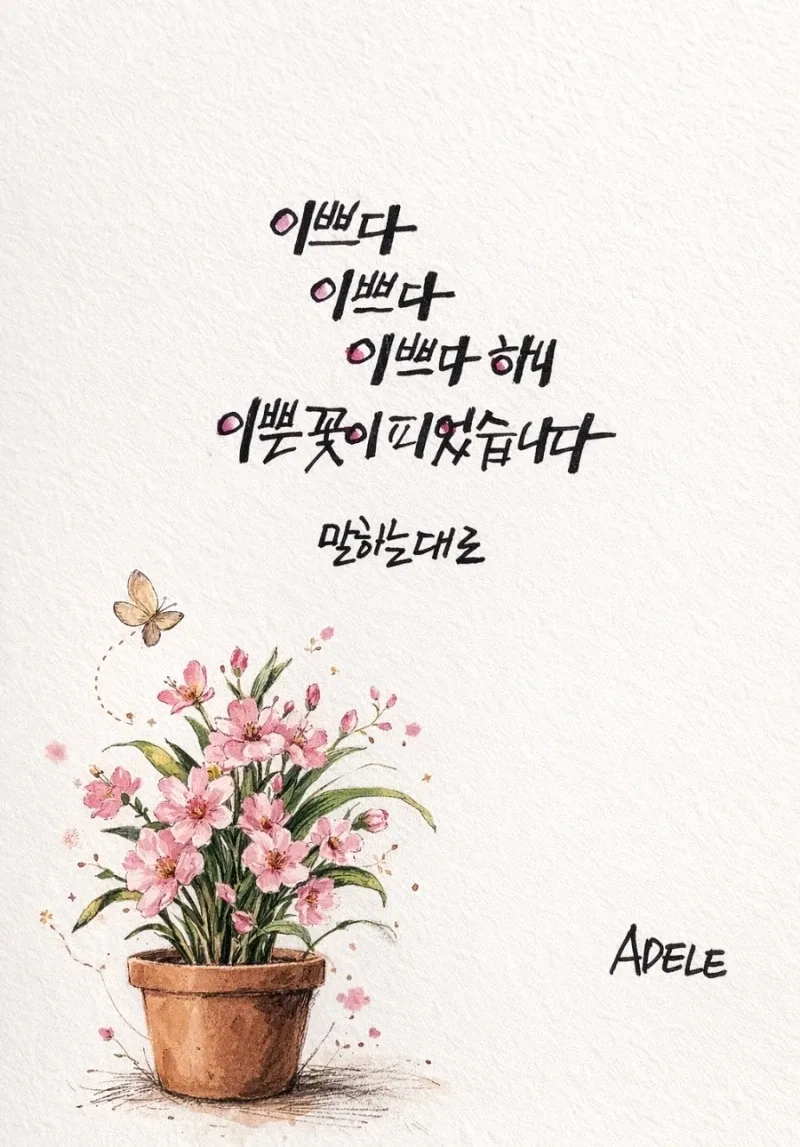 이쁘다
이쁘다
이쁘다 하니
이쁜 꽃이 피었습니다
말하는대로
ADELE